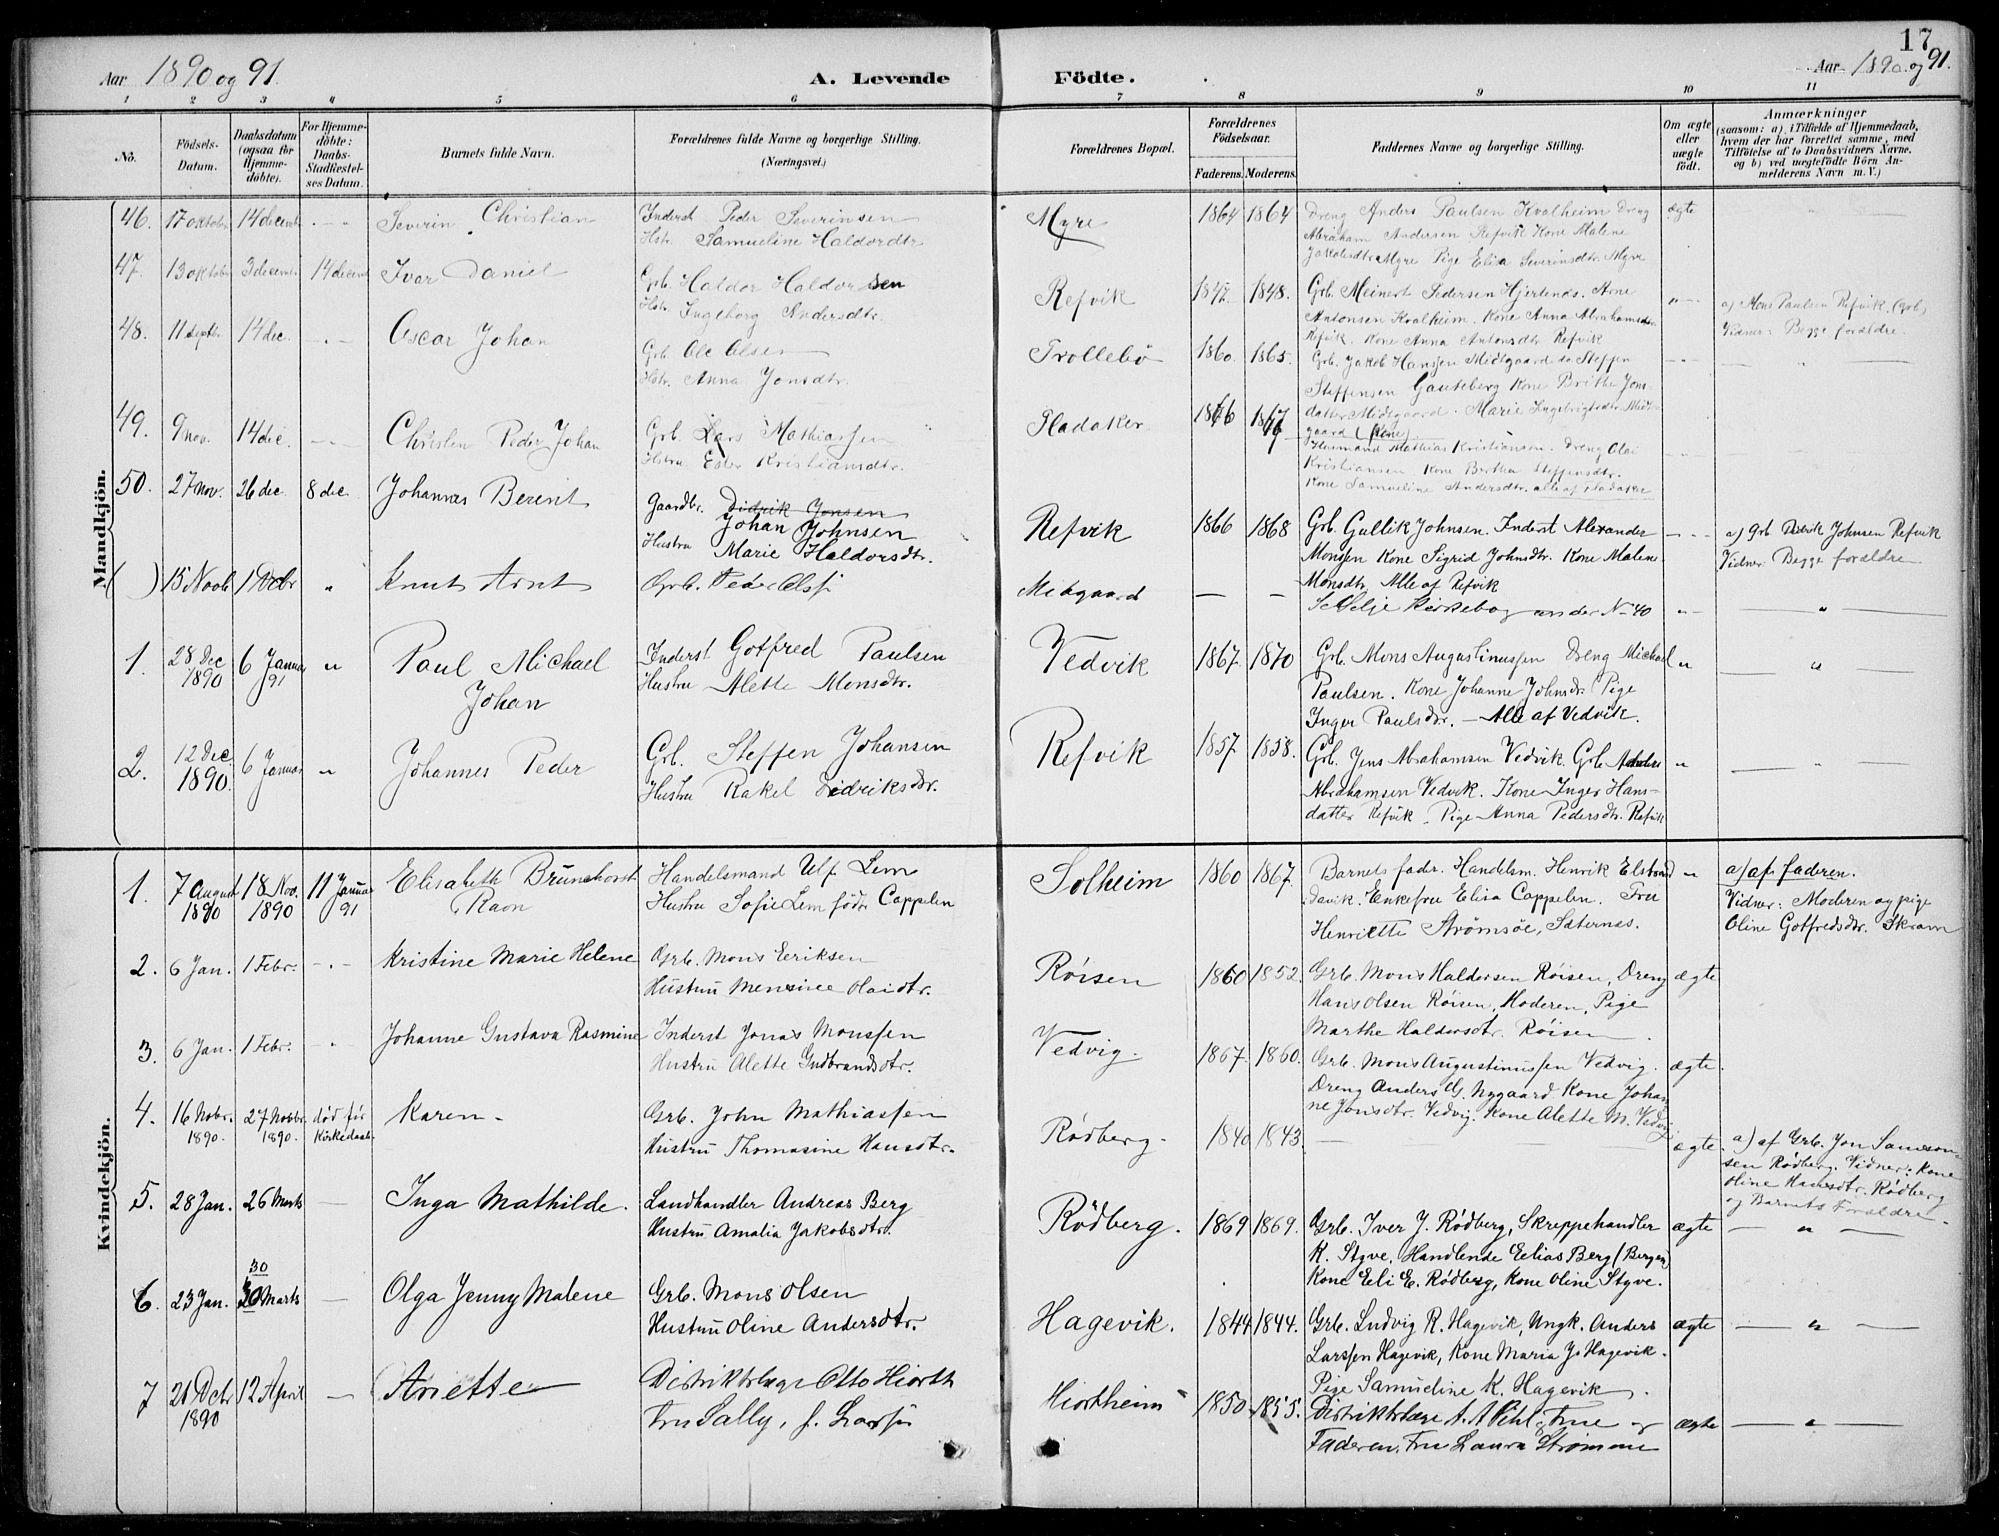 17
Aar 1890 og 91.
A. Levende Födte.
Aar 1890 og 91.
1 2 3 4 5 6 7 8 9 10 11
No.
Födsels-Datum.
Daabsdatum (ogsaa for Hjemme-döbte).
For Hjemme-döbte: Daabs-Stadfæstel-ses Datum.
Barnets fulde Navn.
Forældrenes fulde Navne og borgerlige Stilling. (Næringsvei.)
Forældrenes Bopæl.
Forældrenes Födselsaar.
Faderens. Moderens.
Faddernes Navne og borgerlige Stilling.
Om ægte eller uægte födt.
Anmærkninger
(saasom: a) i Tilfælde af Hjemmedaab, hvem der har forrettet samme, med Tilföielse af to Daabsvidners Navne, og b) ved uægtefödte Börn An-melderens Navn m. V.)
Mandkjön.
46. 17 oktober 14 decemb. Severin Christian
Inderst Peder Severinsen
Hstr. Samueline Haldordtr.
Myre 1864 1864
Dreng Anders Paulsen Kvalheim Dreng
Abraham Andersen Refvik Kone Malene
Jakobsdtr Myre Pige Elisa Severinsdtr. Myre
ægte
47. 13 oktober 3 decemb. 14 decemb. Ivar Daniel
Grb. Haldor Haldorsen
Hstr. Ingeborg Andersdtr.
Refvik 1848.
Grb. Meinert Pedersen Hjertenæs. Arne
Antonsen Kvalheim. Kone Anna Abrahamsdtr
Refvik. Kone Anna Antonsdtr Refvik
a) Mons Paulsen Refvik (Grb)
Vidner: Begge forældre.
48. 11 septb. 14 dec. Oscar Johan
Grb. Ole Olsen
Hstr. Anna Jonsdtr.
Trollebö 1860. 1865.
Grb. Jakob Hanssen Midtgaard do Steffen
Steffensen Gauteberg Kone Brithe Jons-
datter Midtgaard. Marie Ingebrigtsdtr. Midt-
gaard (Kone)
49. 9 nov. 14 dec. Christen Peder Johan
Grb. Lars Mathiassen
Hstru Ester Kristiansdtr.
Fladaker 1866 1867
Husmand Mathias Kristiansen. Dreng Olai
Kristiansen Kone Bertha Steffensdtr.
Kone Samueline Andersdtr. alle af Fladaker
50. 27 nov. 26 dec. 8 dec. Johannes Berent
Gaardbr. Didrik Jonsen
Johan Johnsen
Hustru Marie Haldorsdtr.
Refvik 1866 1868
Grb. Gullik Johnsen. Inderst Alexander
Monsen Kone Sigrid Johnsdtr. Kone Malene
Monsdtr. Alle af Refvik
a) Grb. Didrik Johnsen Refvik
Vidner. Begge forældre
( ) 15 Novb 1 Decbr " Knut Arnt
Grb. Peder Olsf
Midgaard — —
Se Selje Kirkebog under No 40
"
1. 28 Dec 1890 6 Januar 91 " Paul Michael
Johan
Inderst Gotfred Paulsen
Hustru Alette Monsdtr.
Vedvik 1867. 1870
Grb. Mons Augustinussen Dreng Michael
Paulsen. Kone Johanne Johnsdr. Pige
Inger Paulsdtr. — Alle af Vedvik.
"
2. 12 Dec. 1890. 6 Januar " Johannes Peder
Grb. Steffen Johansen
Hustru Rakel Didriksdtr.
Refvik 1857. 1858.
Grb. Jens Abrahamsen Vedvik. Grb. Anders
Abrahamsen Vedvik. Kone Inger Hans-
datter Refvik. Pige Anna Pedersdtr. Refvik
"
Kvindekjön.
1. 7 August 1890 18 Nov. 1890 11 Januar 91 Elisabeth Brunchorst
Raon
Handelsmand Ulf Lem
Hustru Sofie Lem födt Cappelen
Solheim 1860 1867.
Barnets fader. Handelsm. Henrik Elstrand
Davik. Enkefru Elisa Cappelen. Fru
Henriette Strømsöe, Säternæs.
"
a) af faderen.
Vidner: Moderen og pige
Oline Gotfredsdtr. Skram
2. 6 Jan. 1 Febr. Kristine Marie Helene
Grb. Mons Eriksen
Hustru Mensine Olaidtr.
Röisen 1860 1852.
Grb. Mons Haldersen Röisen, Dreng
Hans Olsen Röisen, Moderen, Pige
Marthe Haldersdtr. Röisen.
ægte
3. 6 Jan. 1 Febr. Johanne Gustava Rasmine
Inderst Jonas Monssen
Hustru Alette Gudbrandsdtr.
Vedvig. 1867. 1860.
Grb. Mons Augustinussen Vedvig.
Dreng Anders G. Nygaard Kone Johan
ne Jonsdtr. Vedvig. Kone Alette M. Vedvig
ægte.
4. 16 Nobr. 1890. 27 Nobbr. 1890. död før Kirkedaab. Karen.
Grb. John Mathiassen
Hustru Thomasine Hansdtr.
Rödberg. 1840 1843.
—
ægte.
a) af Grb. Jon Samson-
sen Rödberg. Vidner: Kone
Oline Hansdtr. Rödberg
og Barnets Forældre.
5. 28 Jan. 26 Marts — Inga Mathilde.
Landhandler Andreas Berg
Hustru Amalia Jakobsdtr.
Rödberg. 1869 1869.
Grb. Iver J. Rödberg, Skreppehandler
K. Styve, Handlende Eelias Berg (Bergen)
Kone Eli E. Rödberg, Kone Oline Styve.
ægte — " —
6. 23 Jan. 30 30 Marts — Olga Jenny Malene
Grb. Mons Olsen
Hustru Oline Andersdtr.
Hagevik. 1844 1844.
Grb. Ludvig R. Hagevik, Ungk. Anders
Larssen Hagevik, Kone Maria J. Hagevik.
Pige Samueline K. Hagevik.
ægte — " —
7 21 Dcbr 1890 12 April — Anette
Distriktslæge Otto Hiorth
Fru Sally, f. Larssen
Hiortheim 1850. 1855.
Distriktslæge A. A Pihl, Frue
Faderen, Fru Laura Strömme
ægte — " —